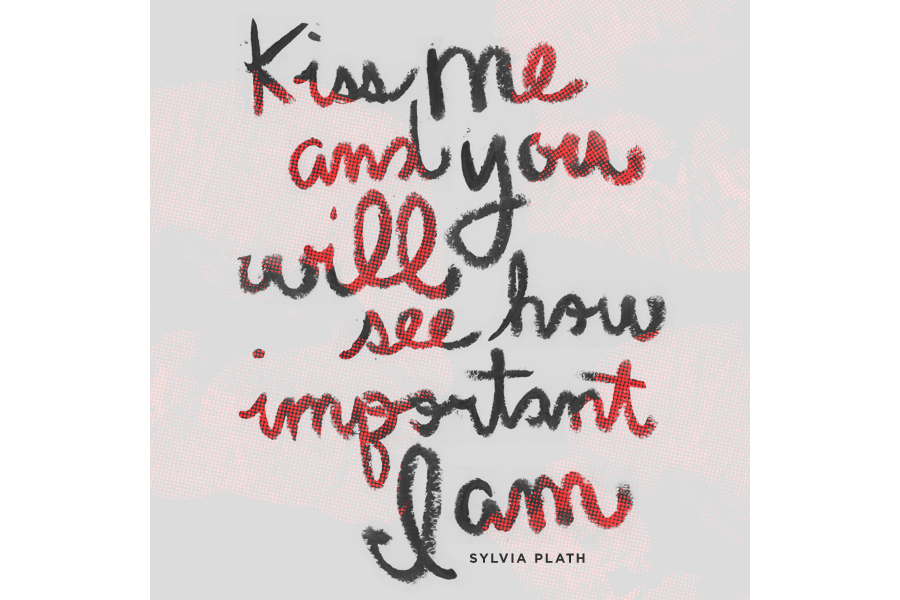 Kiss me
and you
will
see how
important
I am
SYLVIA PLATH